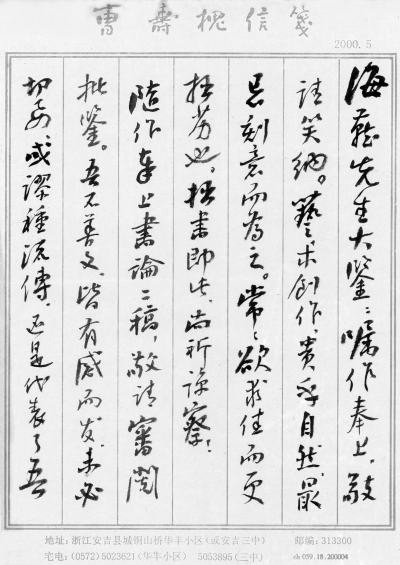 曹寿槐信笺
2000.5
海藏先生大鉴：嘱作奉上，敬
请笑纳。艺术创作，贵乎自然，最
忌刻意而为之。常常欲求佳而更
拙劣也。拙书即此，尚祈谅察：
随作奉上书论二稿，敬请审阅
批鉴。吾不善文，皆有感而发，未必
切要，或谬种流传，还是代表了吾
地址：浙江安吉县城铜山桥华丰小区（或安吉三中）
邮编：313300
宅电：(0572) 5023621（华丰小区） 5053895（三中）
sh 059.18.200004